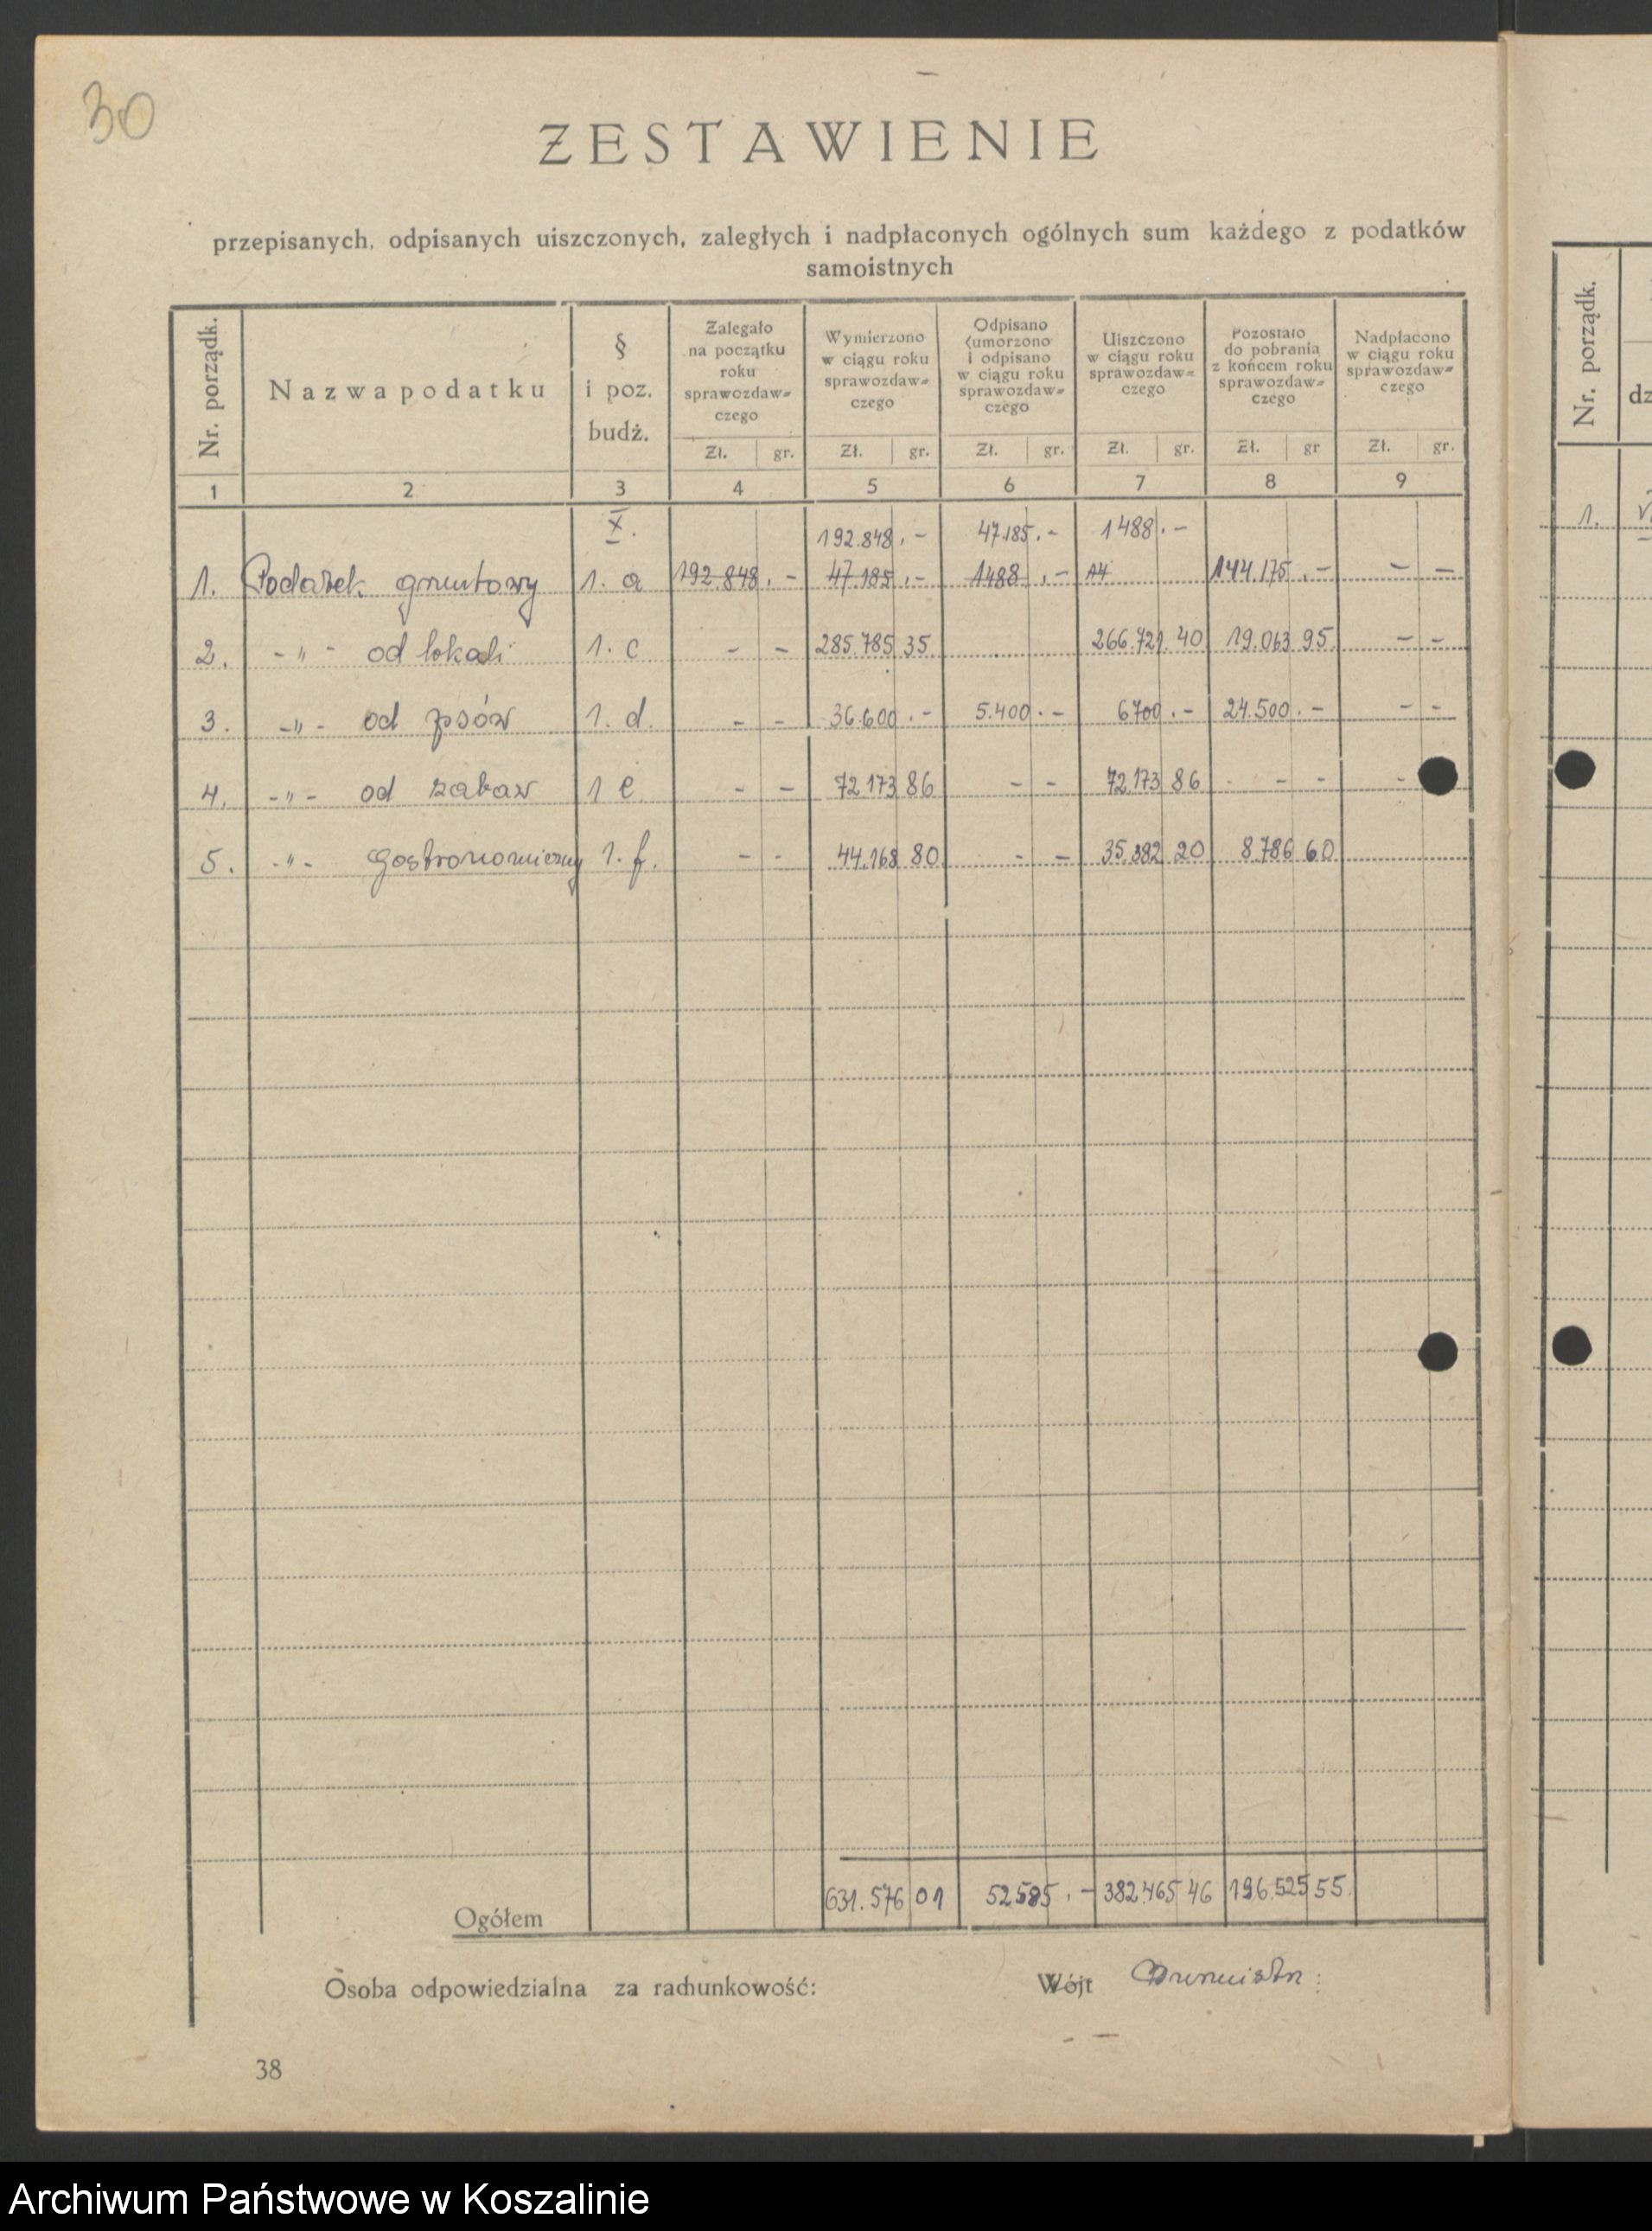 30
ZESTAWIENIE
przepisanych, odpisanych uiszczonych, zaległych i nadpłaconych ogólnych sum każdego z podatków
samoistnych
Nr. porządk.
Nazwa podatku
§
i poz.
budż.
Zalegało
na początku
roku
sprawozdaw=
czego
Zł. gr.
Wymierzono
w ciągu roku
sprawozdaw=
czego
Zł. gr.
Odpisano
(umorzono
i odpisano
w ciągu roku
sprawozdaw=
czego
Zł. gr.
Uiszczono
w ciągu roku
sprawozdaw=
czego
Zł. gr.
Pozostało
do pobrania
z końcem roku
sprawozdaw=
czego
Zł. gr
Nadpłacono
w ciągu roku
sprawozdaw=
czego
Zł. gr.
1 2 3 4 5 6 7 8 9
X. 192.848.- 47.185.- 1488.-
1. Podatek gruntowy 1. a 192.848.- 47.185.- 1488.- 14 144.175.- - -
2. -"- od lokali 1. c - - 285.785 35 266.721.40 19.063 95 - -
3. -"- od psów 1. d. - - 36.600.- 5.400.- 6700.- 24.500.- - -
4. -"- od zabaw 1 e - - 72.173 86 - - 72.173 86 - - - -
5. -"- gastronomiczny 1. f. - - 44.168 80 - - 35.382 20 8.786 60
Ogółem 631.576 01 52585.- 382.465 46 196.525 55
Osoba odpowiedzialna za rachunkowość: Wójt Burmistrz:
38
Nr. porządk.
dz
1.
Archiwum Państwowe w Koszalinie